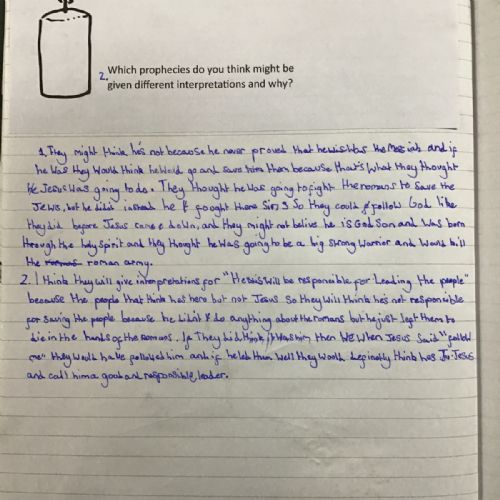 2. Which prophecies do you think might be
given different interpretations and why?
1. They might think he's not because he never proved that he was the Messiah and if
he was they would think he would go and save them because that's what they thought
Jesus was going to do. They thought he was going to fight the romans to save the
Jews, but he didn't instead he fought there sins so they could follow God like
they did before Jesus came down, and they might not belive he is God son and was born
through the holy spirit and they thought he was going to be a big strong warrior and would kill
the romans roman army.
2. I think they will give interpretations for "He will be responsible for leading the people"
because the people that think has here but not Jesus so they will think he's not responsible
for saving the people because he didn't do anything about the romans but he just left them to
die in the hands of the romans. If they did think it was him then when Jesus said "follow
me" they would have followed him and if he led them well they would definitely think has Jesus
and call him a good and responsible leader.